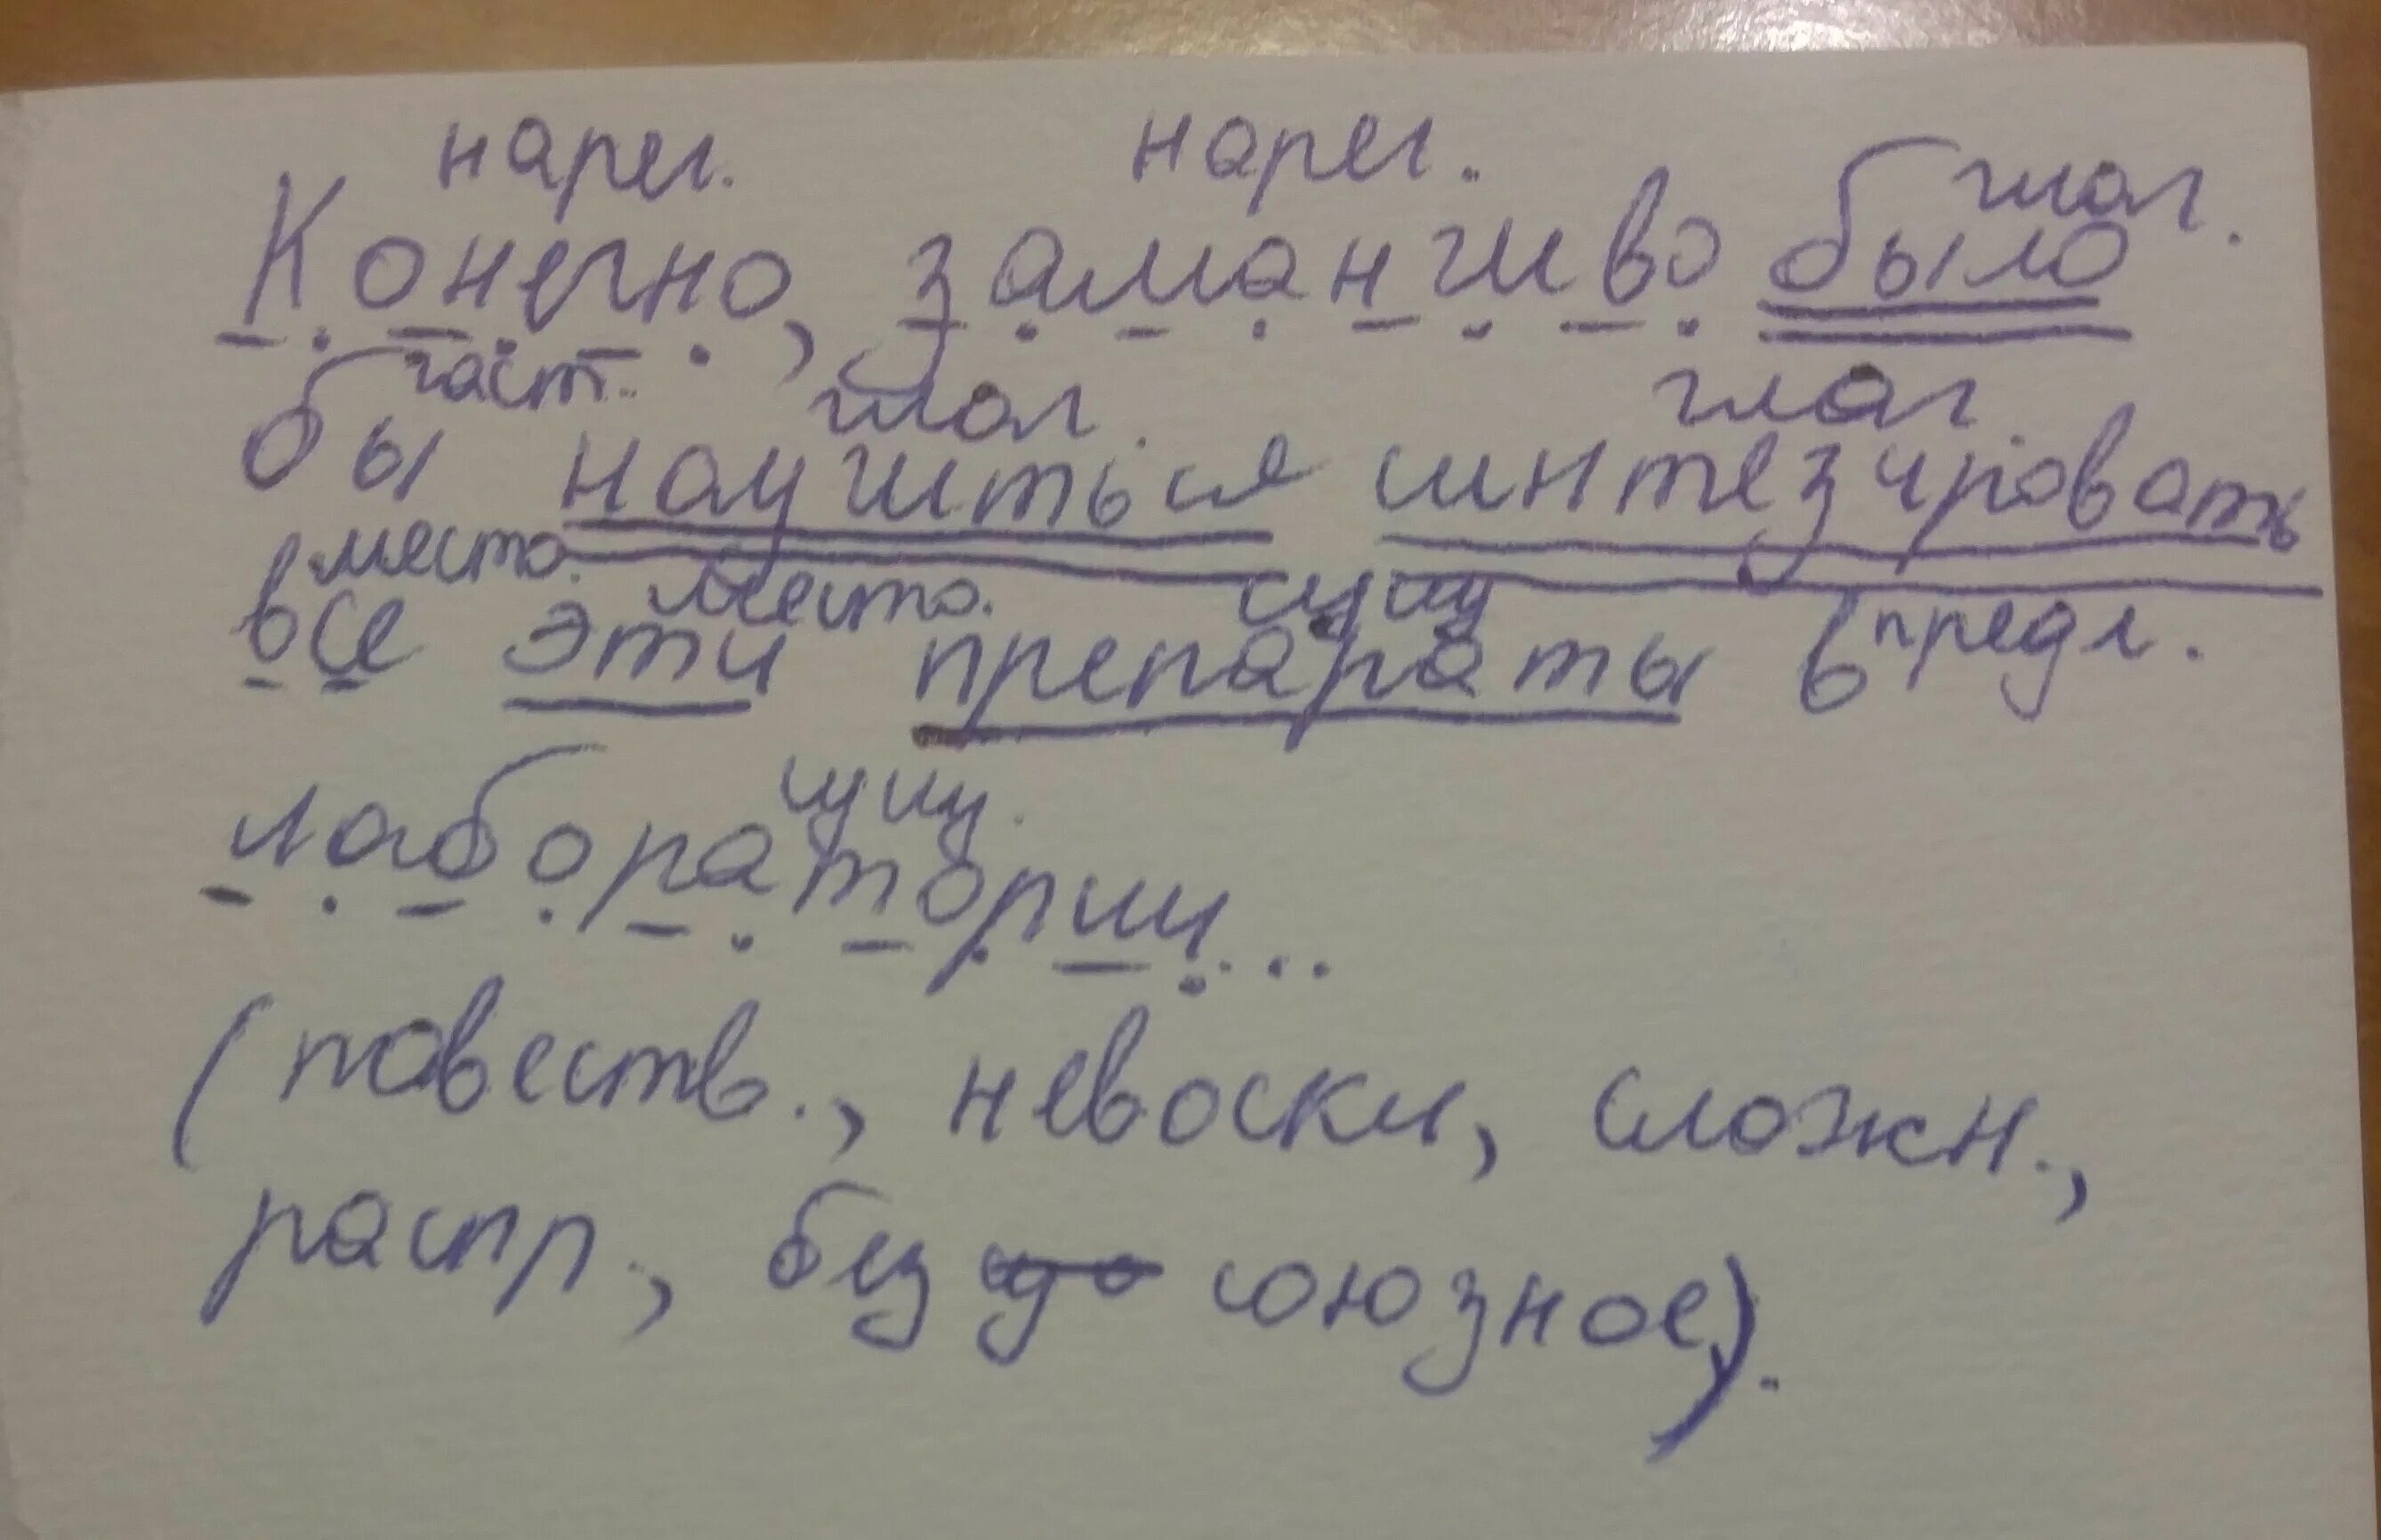 нареч. нареч. глаг.
Конечно, заманчиво было
част. глаг. глаг.
бы научиться синтезировать
место. место. сущ предл.
все эти препараты в
сущ.
лаборатории...
(повеств., невоскл, сложн.,
распр., без союзное).